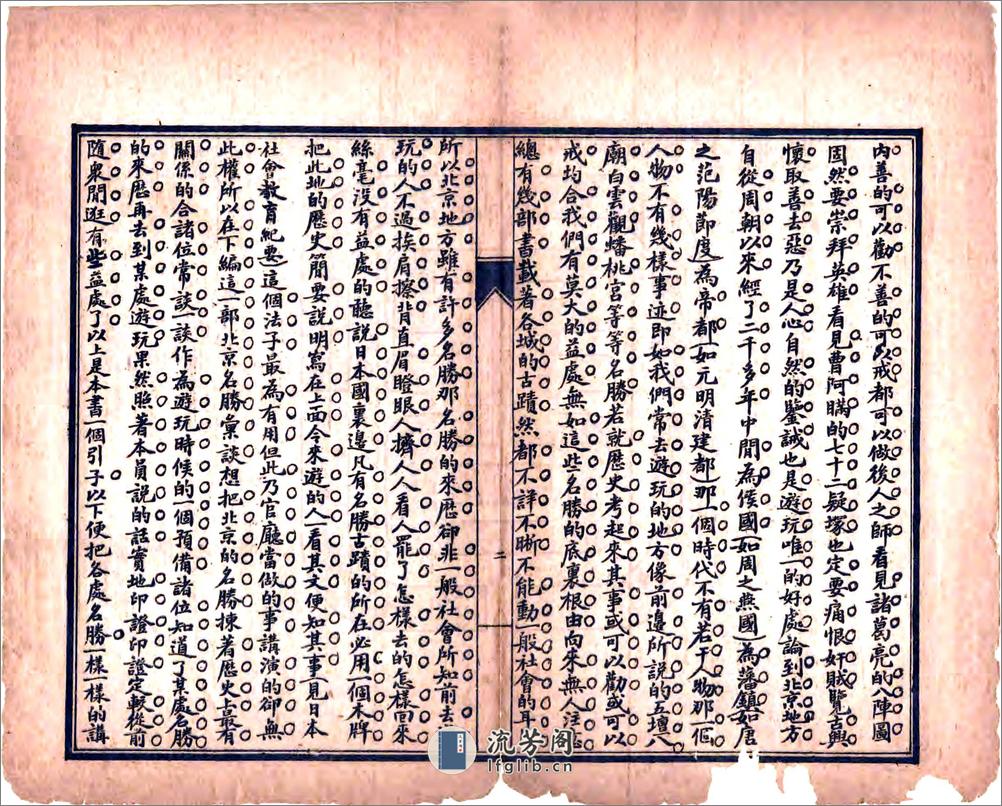 內善的可以勸不善的可以戒都可以做後人之師看見諸葛亮的八陣圖
固然要崇拜英雄看見曹阿瞞的七十二疑塚也定要痛恨奸賊覽古興
懷取善去惡乃是人心自然的鑒誡也是遊玩唯一的好處論到北京地方
自從周朝以來經了二千多年中間為侯國(如周之燕國)為藩鎮(如唐
之范陽節度)為帝都(如元明清建都)那一個時代不有若干人物那一個
人物不有幾樣事迹即如我們常去遊玩的地方像前邊所說的五壇八
廟白雲觀蟠桃宮等等名勝若就歷史考起來其事或可以勸或可以
戒均合我們有莫大的益處無如這些名勝的底裏根由向來無人注
總有幾部書載著各城的古蹟然都不詳不晰不能動一般社會的耳
二
所以北京地方雖有許多名勝那名勝的來歷卻非一般社會所知前去
玩的人不過挨肩擦背直眉瞪眼人擠人人看人罷了怎樣去的怎樣回來
絲毫沒有益處的聽說日本國裏邊凡有名勝古蹟的所在必用一個木牌
把此地的歷史簡要說明寫在上面今來遊的人一看其文便知其事(見日本
社會教育紀要)這個法子最為有用但此乃官廳當做的事講演的卻無
此權所以在下編這一部北京名勝彙談想把北京的名勝揀著歷史上最有
關係的合諸位常談一談作為遊玩時候的一個預備諸位知道了某處名勝
的來歷再去到某處遊玩果然照著本員說的話實地印證印證定較從前
隨衆閒逛有些益處了以上是本書一個引子以下便把各處名勝一樣一樣的講
流芳阁
lfglib.cn